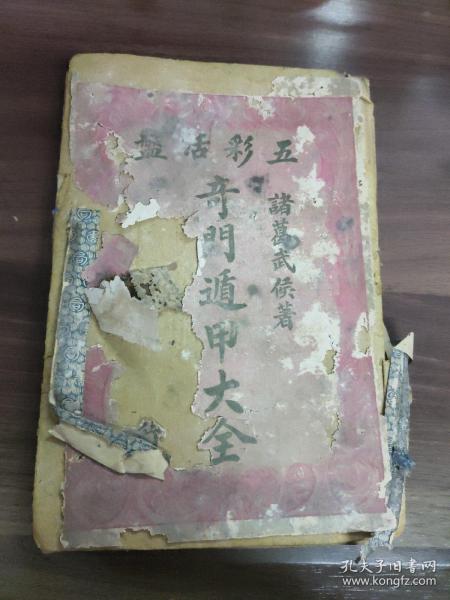 五彩活盤
諸葛武侯著
奇門遁甲大全
孔夫子旧书网
www.kongfz.com